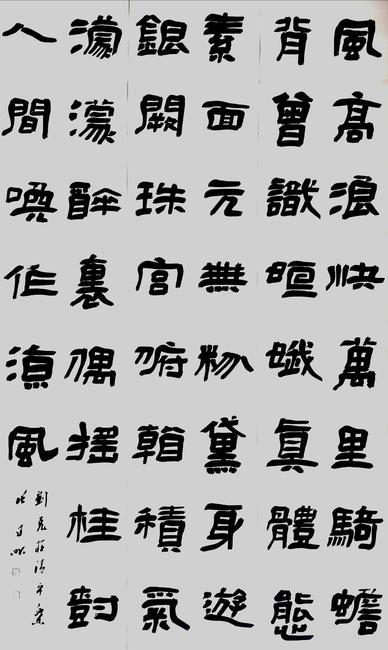 風高浪快萬里騎蟾
背曾識姮娥真體態
素面元無粉黛身遊
銀闕珠宮俯看積氣
濛濛醉裏偶搖桂樹
人間喚作涼風
劉克莊清平樂